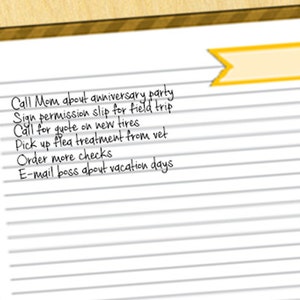 Call Mom about anniversary party
Sign permission slip for field trip
Call for quote on new tires
Pick up flea treatment from vet
Order more checks
E-mail boss about vacation days